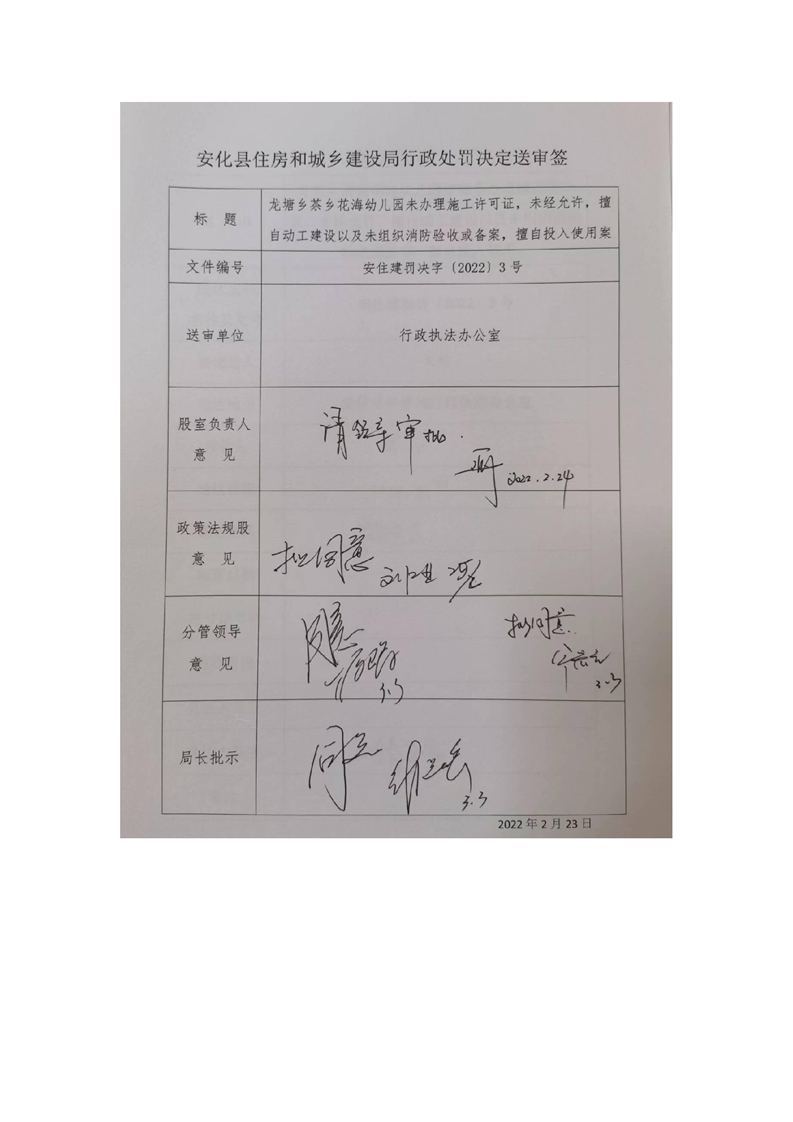 安化县住房和城乡建设局行政处罚决定送审签
标 题
龙塘乡茶乡花海幼儿园未办理施工许可证，未经允许，擅
自动工建设以及未组织消防验收或备案，擅自投入使用案
文件编号
安住建罚决字〔2022〕3号
送审单位
行政执法办公室
股室负责人
意 见
请领导审批.
2022.2.24
政策法规股
意 见
拟同意
分管领导
意 见
同意
3.3
拟同意
3.3
局长批示
同意
3.3
2022年2月23日